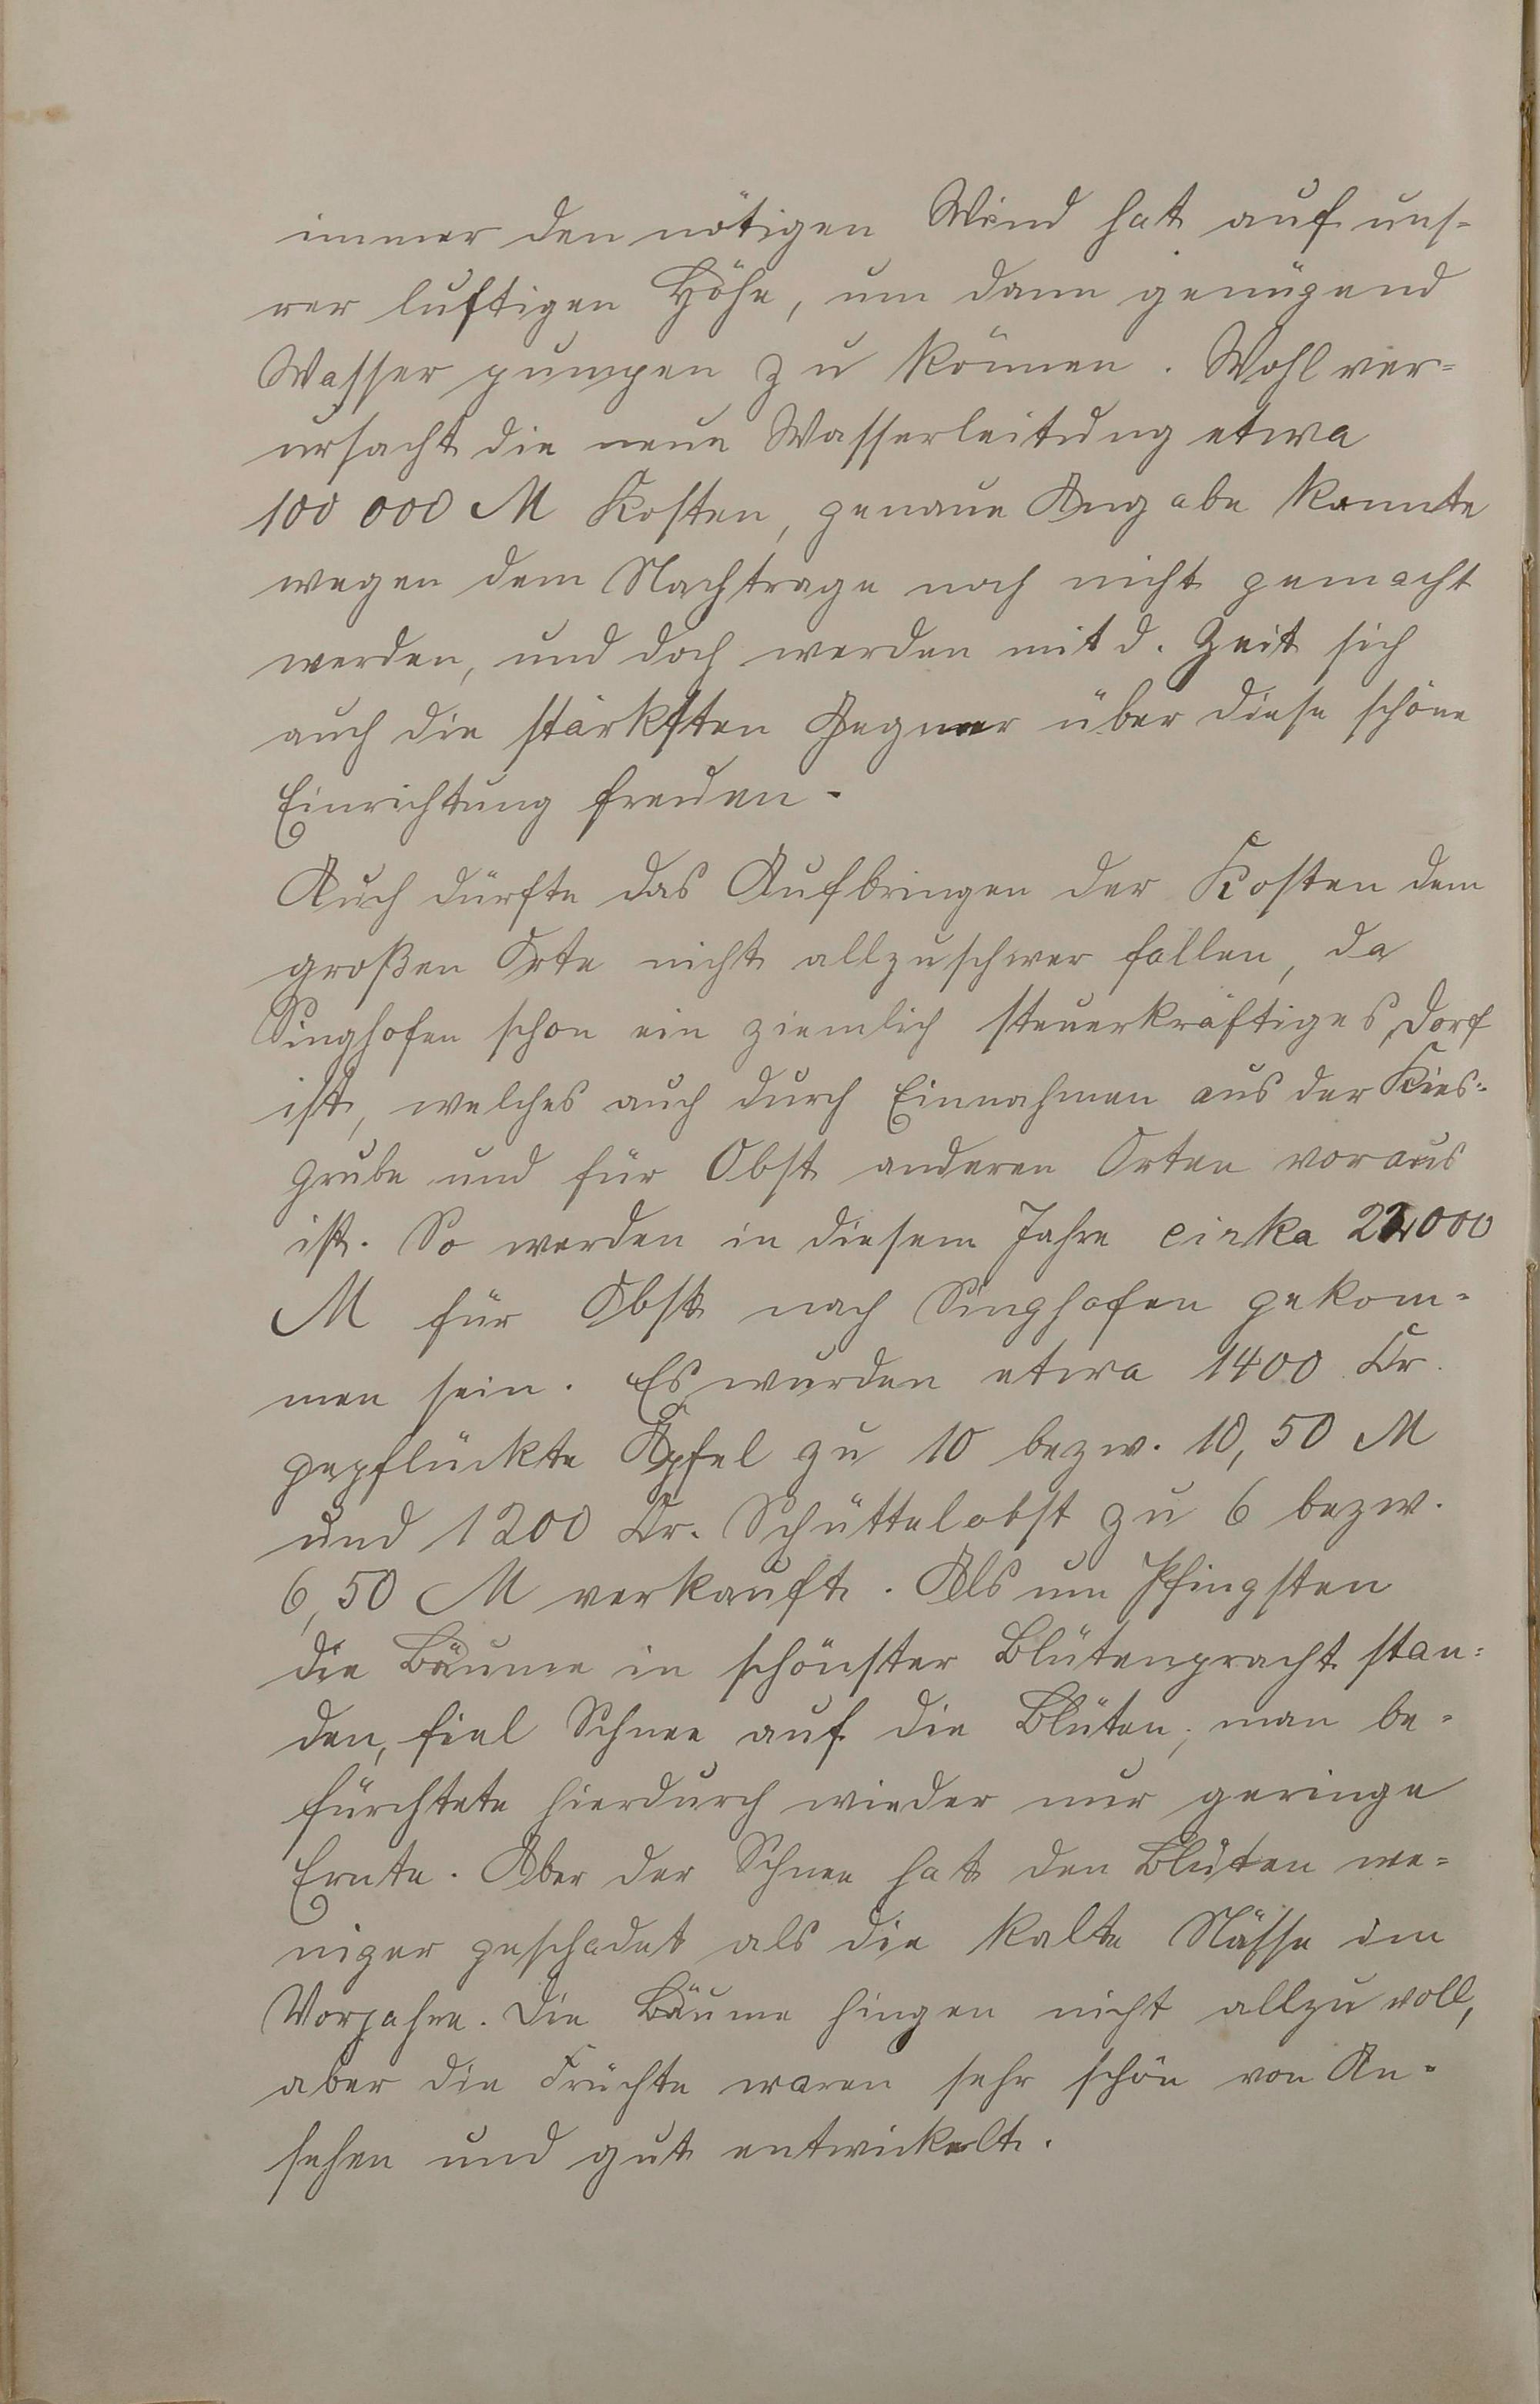 immer den nötigen Wind hat auf uns-
rer luftigen Höhe, um dann genügend
Wasser pumpen zu können. Wohl ver-
ursacht die neue Wasserleitung etwa
100 000 M Kosten, genaue Angabe konnte
wegen dem Nachtrage noch nicht gemacht
werden, und doch werden mit d. Zeit sich
auch die stärksten Gegner über diese schöne
Einrichtung freuen.
Auch dürfte das Aufbringen der Kosten dem
großen Orte nicht allzuschwer fallen, da
Singhofen schon ein ziemlich steuerkräftiges Dorf
ist, welches auch durch Einnahmen aus der Kies-
grube und für Obst anderen Orten voraus
ist. So werden in diesem Jahre cirka 22000
M für Obst nach Singhofen gekom-
men sein. Es wurden etwa 1400 Ctr.
gepflückte Äpfel zu 10 bezw. 10,50 M
und 1200 Ctr. Schüttelobst zu 6 bezw.
6,50 M verkauft. Als um Pfingsten
die Bäume in schönster Blütenpracht stan-
den, fiel Schnee auf die Blüten; man be-
fürchtete hierdurch wieder nur geringe
Ernte. Aber der Schnee hat den Blüten we-
niger geschadet als die kalte Nässe im
Vorjahre. Die Bäume hingen nicht allzu voll,
aber die Früchte waren sehr schön von An-
sehen und gut entwickelt.